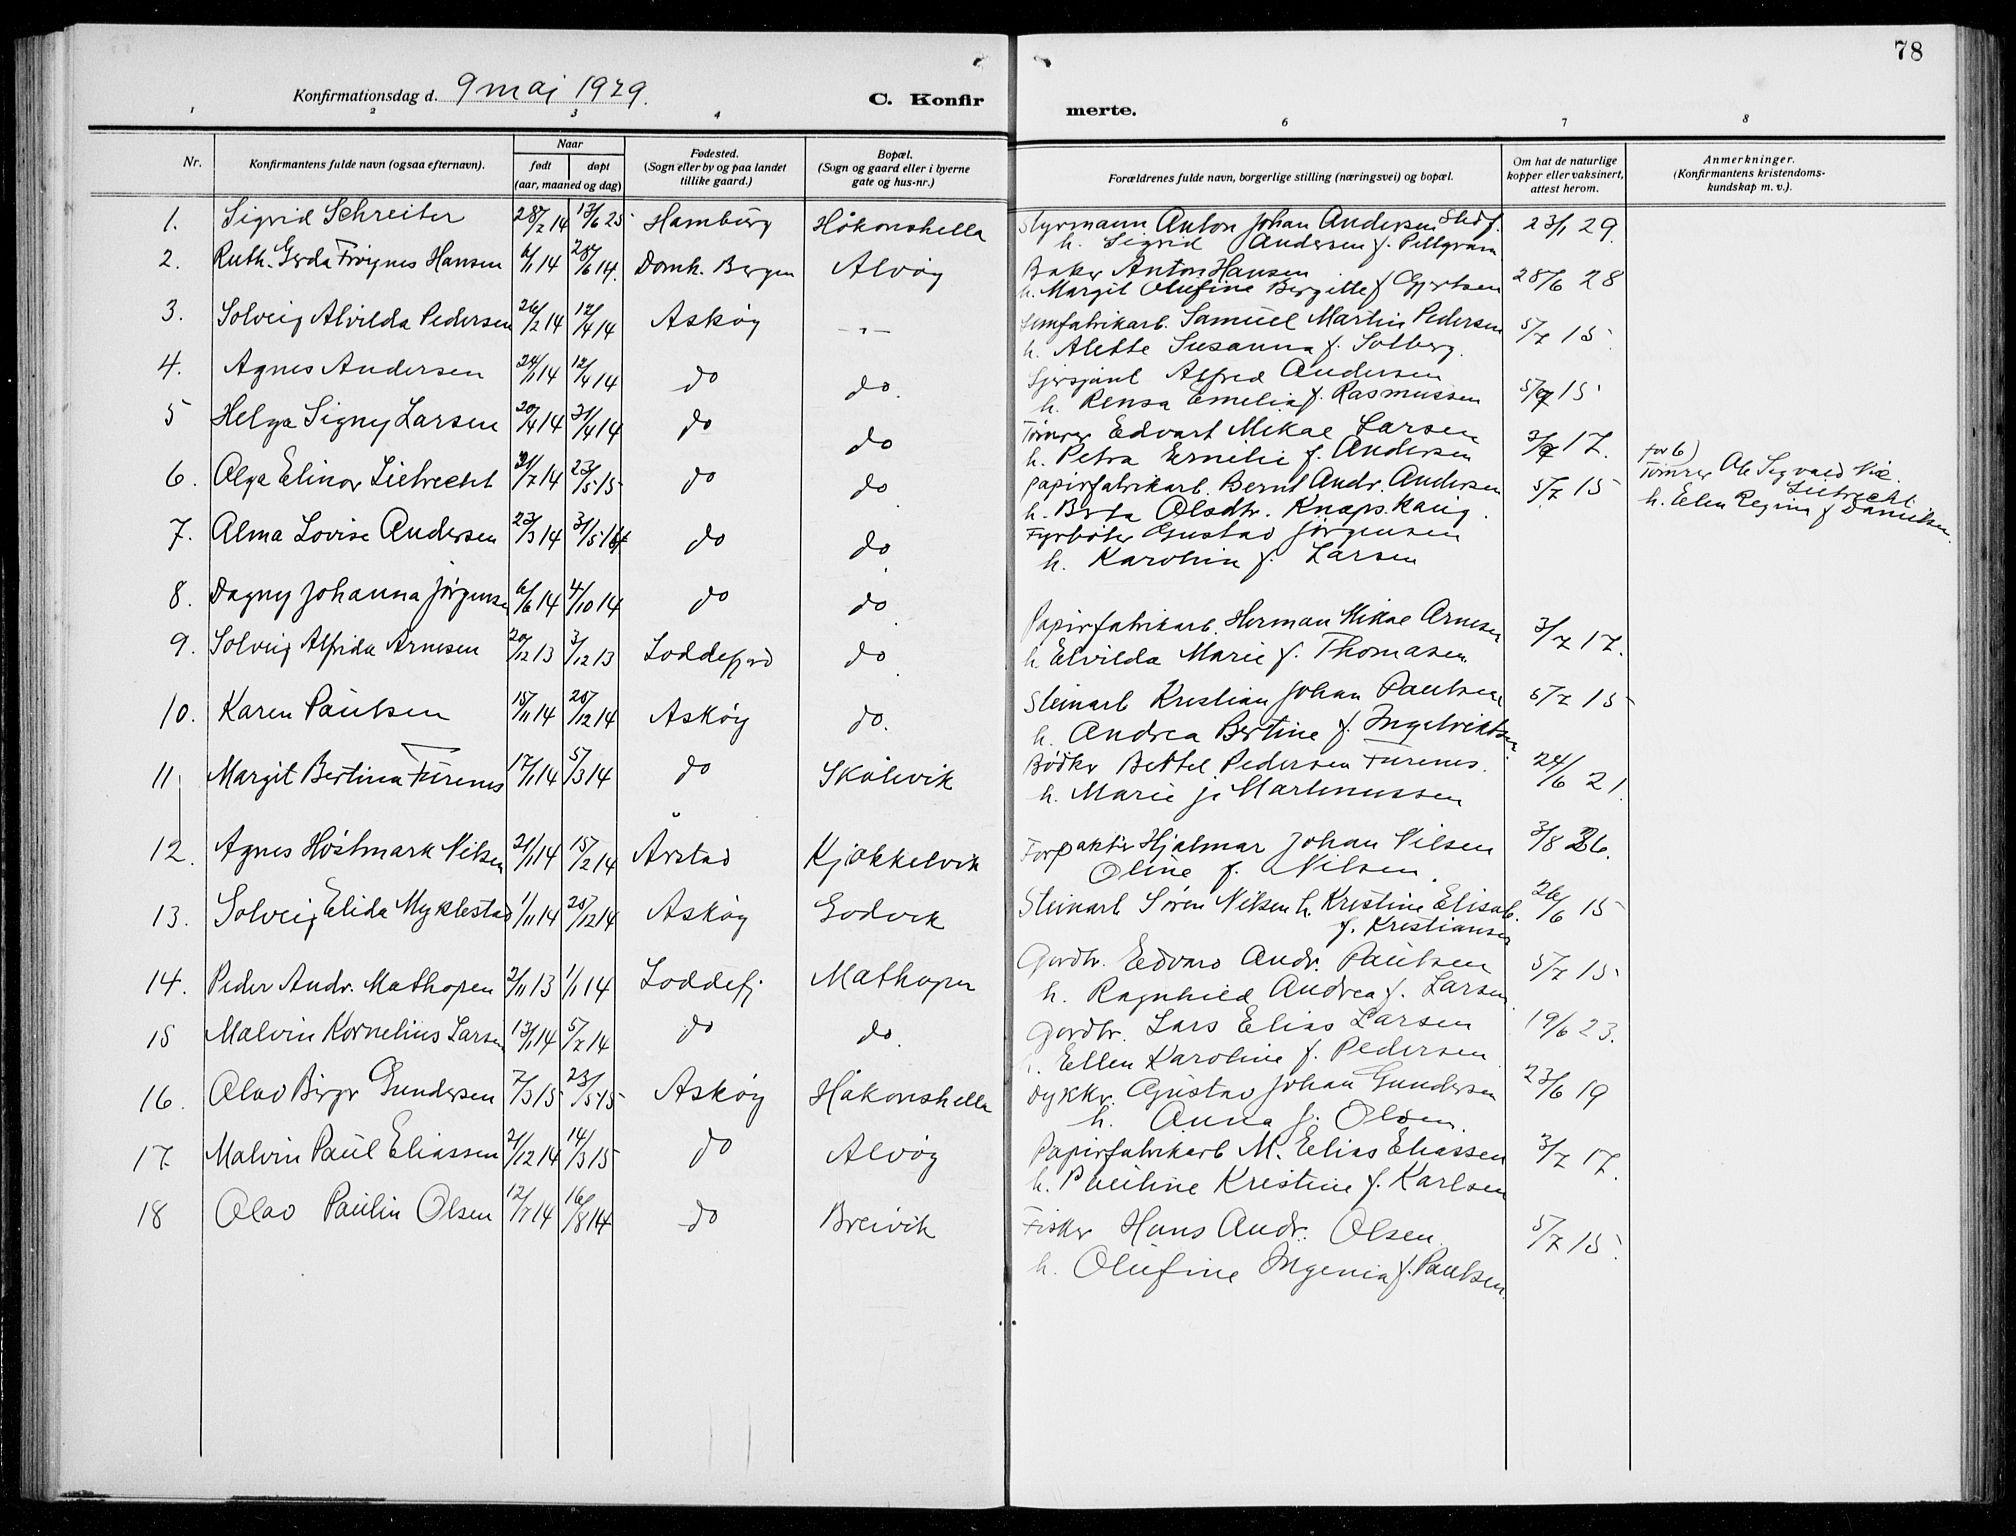 78
Konfirmationsdag d. 9 mai 1929.
C. Konfir
merte.
1 2 3 4 6 7 8
Nr.
Konfirmantens fulde navn (ogsaa efternavn).
Naar
født
døpt
(aar, maaned og dag)
Fødested.
(Sogn eller by og paa landet
tillike gaard.)
Bopæl.
(Sogn og gaard eller i byerne
gate og hus-nr.)
Forældrenes fulde navn, borgerlige stilling (næringsvei) og bopæl.
Om hat de naturlige
kopper eller vaksinert,
attest herom.
Anmerkninger.
(Konfirmantens kristendoms-
kundskap m. v.).
1. Sigrid Schreiter 28/2 14 13/6 25 Hamburg Håkonshella
Styrmann Anton Johan Andersen Stedf. 23/1 29.
h. Sigrid Andersen f. Pellgram
2. Ruth. Gerda Frøynes Hansen 6/1 14 28/6 14. Domk. Bergen Alvøy
Baker Anton Hansen 28/6 28
h. Margit Olufine Bergitte f Gjertsen
3. Solveig Alvilda Pedersen 26/2 14 12/4 14 Askøy -"-
Samuel Martin Pedersen 5/7 15.
h. Alette Susanna f. Solberg.
4. Agnes Andersen 24/1 14 12/4 14 do do.
Alfred Andersen 5/7 15
h. Rensa Emelia f. Rasmussen
5 Helga Signy Larsen 20/4 14 31/4 14 do do
Tømrer Edvart Mikal Larsen 3/7 17.
h. Petra Emelie f. Andersen
6. Olga Elinor Liebrecht 31/7 14 23/5 15 do do.
papirfabrikarb. Bernt Andr. Andersen 5/7 15
h. Berta Olsdtr. Knapskaug.
for 6)
Tømrer Ole Sigvald Nic.
Liebrecht
h. Elen Regine f Danielsen.
7. Alma Lovise Andersen 23/3 14 31/5 14 do do.
Fyrbøter Gustav Jørgensen
h. Karoline f. Larsen
8. Dagny Johanna Jørgensen 6/6 14 4/10 14 do do.
9. Solveig Alfrida Arnesen 20/12 13 3/12 13 Loddefjord do.
Papirfabrikarb. Herman Mikal Arnesen 3/7 17.
h Elvilda Marie f. Thomasen
10. Karen Paulsen 15/11 14 25/12 14 Askøy do.
Steinarb Kristian Johan Paulsen 5/7 15
h. Andrea Bertine f. Ingebriktsen
11 Margit Bertina Furenes 17/1 14 5/3 14 do Skålevik
Bødker Bertel Pedersen Furenes. 24/6 21.
h. Marie f. Martinussen
12. Agnes Høstmark Nilsen 21/1 14 15/2 14 Årstad Kjøkkelvik
Forpakter Hjalmar Johan Nilsen 3/8 26.
Oline f. Nilsen.
13. Solveig Elida Myklestad 1/11 14 25/12 14 Askøy Godvik
Steinarb Søren Nilsen h. Kristine Elisab. 26/6 15
f. Kristiansen
14. Peder Andr. Mathopen 2/11 13 1/1 14 Loddefj Mathopen
Gardbr. Edvard Andr. Paulsen 5/7 15
h. Ragnhild Andrea f. Larsen
15 Malvin Kornelius Larsen 13/1 14 5/7 14 do do.
Gardbr. Lars Elias Larsen 19/6 23.
h. Ellen Karoline f. Pedersen
16. Olav Birger Gundersen 7/3 15 23/5 15 Askøy Håkonshella
Dykker. Gustav Johan Gundersen 23/6 19
h. Anna f. Olsen.
17. Malvin Paul Eliassen 21/12 14 14/3 15 do Alvøy
Papirfabrikarb M. Elias Eliassen 3/7 17.
h. Pauline Kristine f. Karlsen
18 Olav Paulin Olsen 12/7 14 16/8 14 do Breivik
Fisker Hans Andr. Olsen. 5/7 15.
h. Olufine Ingenia f. Paulsen.